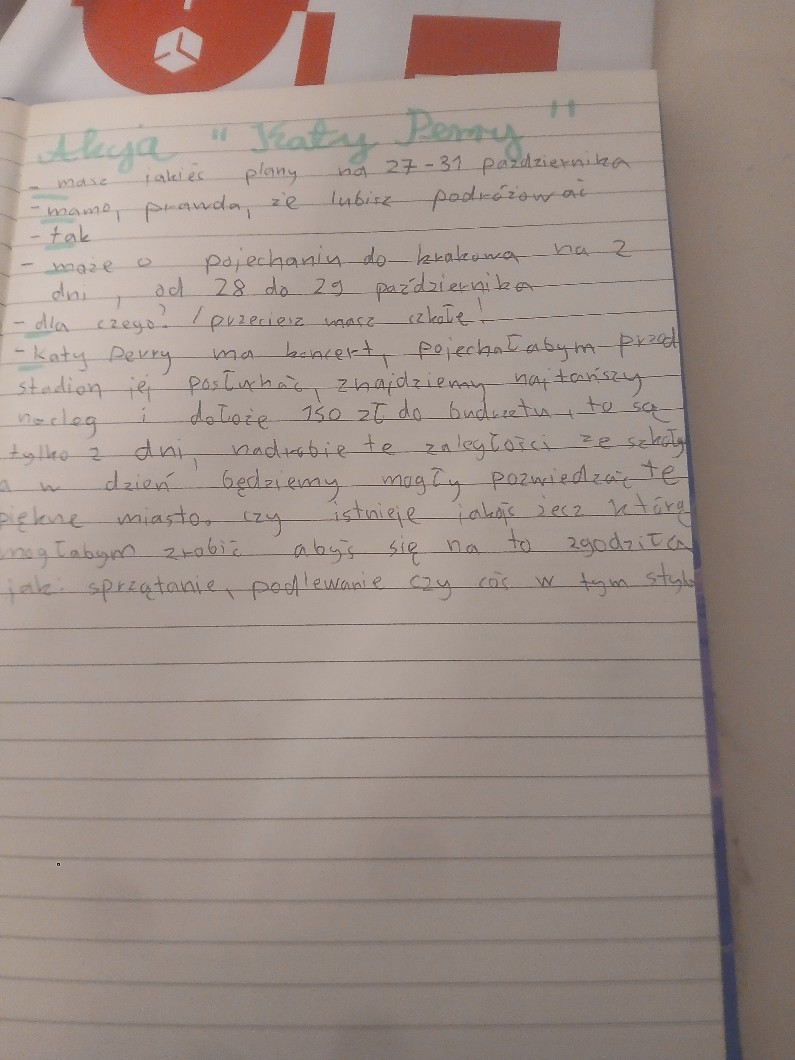 Akcja "Katy Perry"
- masz jakieś plany na 27-31 października
- mamo, prawda, że lubisz podróżować
- tak
- może o pojechaniu do krakowa na 2
dni, od 28 do 29 października
- dla czego? / przeciesz masz szkołe!
- Katy Perry ma koncert, pojechałabym przed
stadion jej posłuchać, znajdziemy najtańszy
nocleg i dołoże 150 zł do budrzetu, to są
tylko 2 dni, nadrobie te zaległości ze szkoły
a w dzień będziemy mogły pozwiedzać te
piękne miasto. czy istnieje jakaś rzecz którą
mogłabym zrobić abyś się na to zgodziła
jak: sprzątanie, podlewanie czy coś w tym stylu